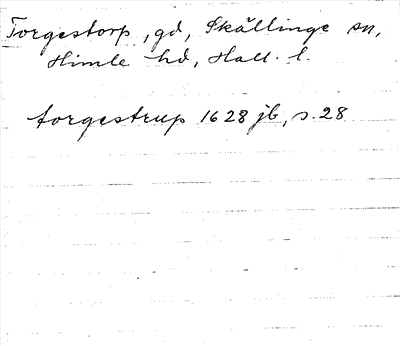 Torgestorp, gd, Skällinge sn,
Himle hd, Hall. l.
torgestrup 1628 jb, s. 28